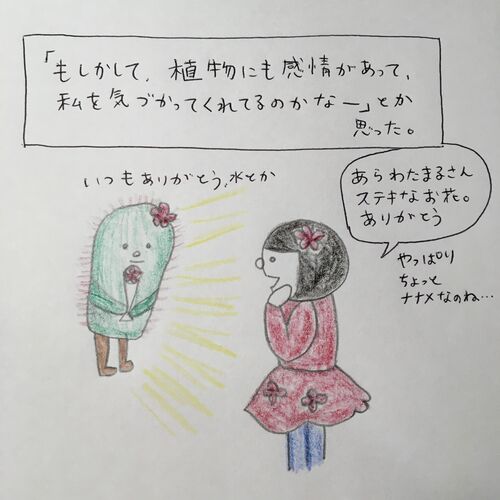 「もしかして、植物にも感情があって、
私を気づかってくれてるのかなー」とか
思った。
いつもありがとう、水とか
あらわたまるさん
ステキなお花。
ありがとう
やっぱり
ちょっと
ナナメなのね…